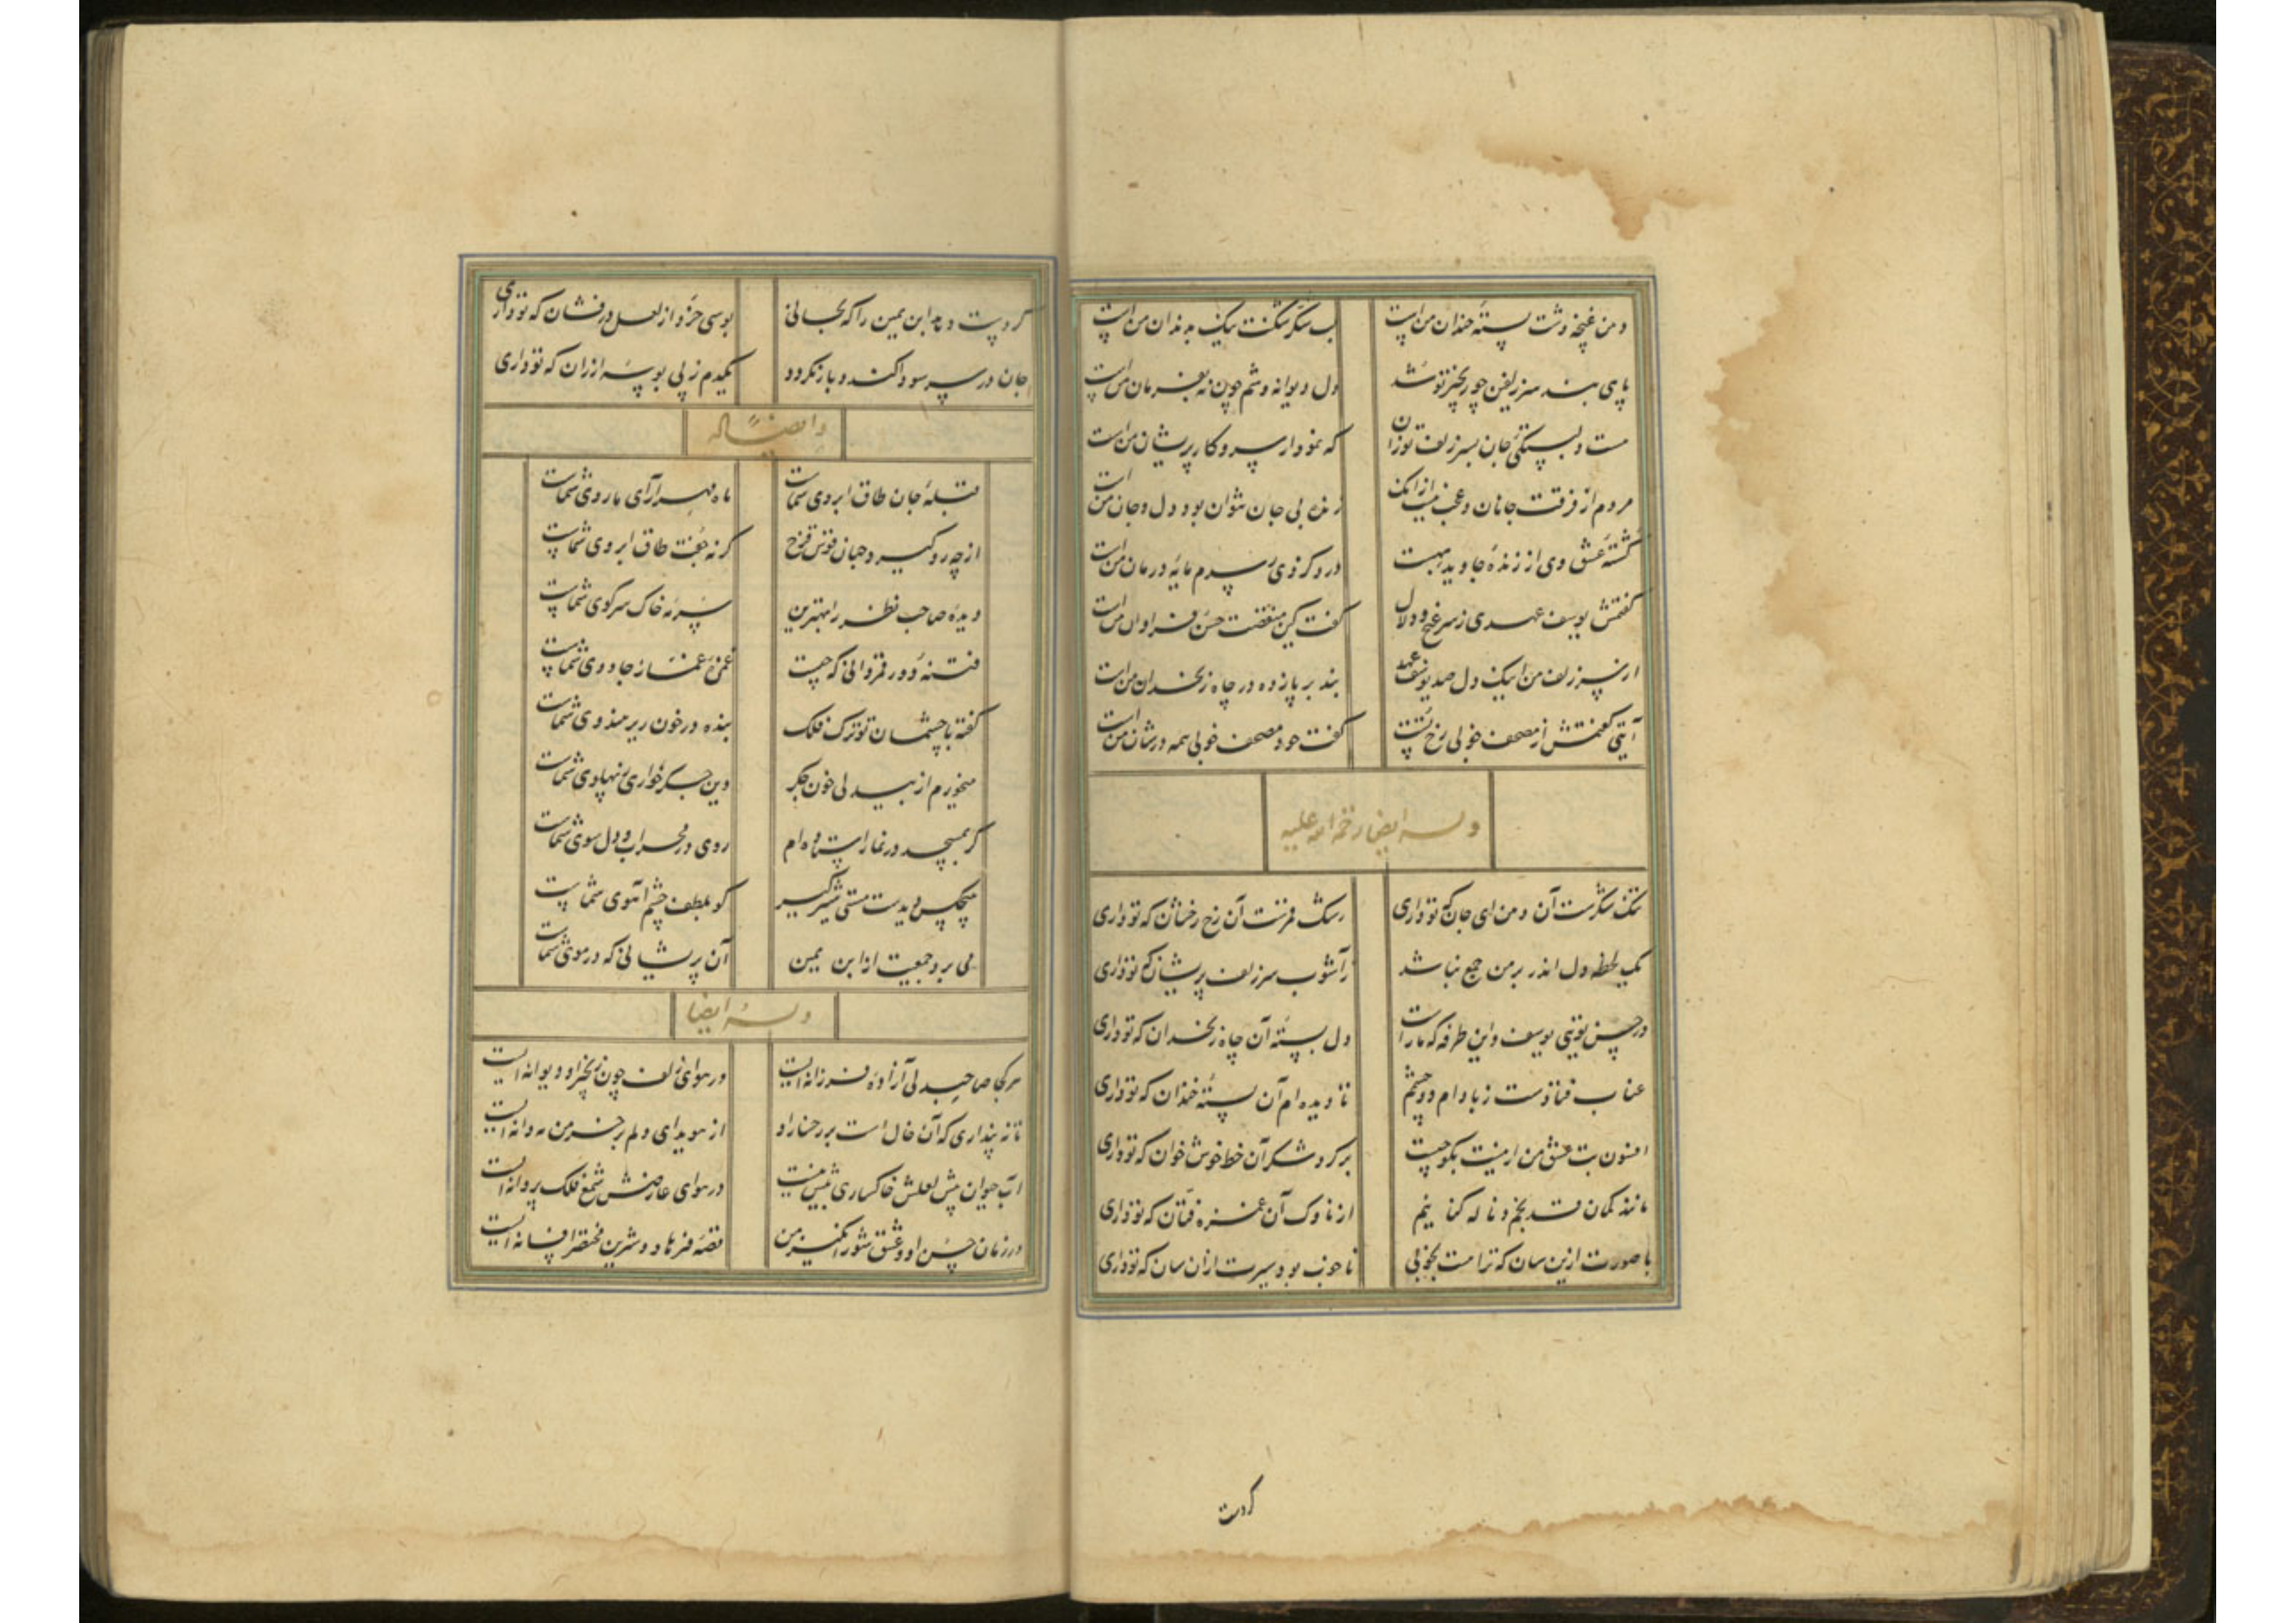 دهن غنچه وشت پسته خندان منست لب شکر شکنت نیک به دندان منست
پای بند سر زلفین چو زنجیر تو شد دل دیوانه وشم چون نه بفرمان منست
هست دلبستگی جان بسر زلف تو زان که نمودار سر و کار پریشان منست
مردم از فرقت جانان و عجب نیست از آنک زنده بی جان نتوان بود و دل و جان منست
کشته عشق وی از زنده جاوید بهست درد کز وی رسدم مایه درمان منست
گفتمش یوسف عهدی ز سر غنج و دلال گفت کین منقصت حسن فراوان منست
از سر زلف من اینک دل صد یوسف عهد بند بر پا زده در چاه زنخدان منست
آیتی گفتمش از مصحف خوبی رخ تست گفت خود مصحف خوبی همه در شان منست
وله ایضا رحمة الله علیه
تنگ شکرست آن دهن ای جان که تو داری رشک قمرست آن رخ رخشان که تو داری
یک لحظه دل اندر بر من جمع نباشد ز آشوب سر زلف پریشان که تو داری
در حسن توئی یوسف و این طرفه که ما راست دل بسته آن چاه زنخدان که تو داری
عناب فتادست ز بادام دو چشمم تا دیده ام آن پسته خندان که تو داری
افسون بت عشق من ار نیست بگو چیست بر گرد شکر آن خط خوش خوان که تو داری
مانند کمان قد بخم و ناله کنانیم از ناوک آن غمزه فتان که تو داری
با صورت ازین سان که ترا هست بخوبی تا خوب بود سیرت از ان سان که تو داری
کر دست
کر دست دهد ابن یمین را که بجانی بوسی خرد از لعل درفشان که تو داری
جان در سر سودا کند و باز نگردد یکدم ز پی بوسه ارزان که تو داری
وایضا له
قبله جان طاق ابروی شماست ماه مهرآرای ما روی شماست
از چه رو گیرد جهان قوس قزح گر نه جفت طاق ابروی شماست
دیده صاحب نظر را بهترین سرمه خاک سر کوی شماست
فتنه دور قمر دانی که چیست غمزه غمازه جادوی شماست
گفته با چشمان تو ترک فلک بنده در خون ریز هندوی شماست
میخورم از بیدلی خون جگر وین جگر خواری ز پهلوی شماست
گر بمسجد در نماز استاده ام روی در محراب و دل سوی شماست
هیچکس دیدست مستی شیرگیر کو بلطف چشم آهوی شماست
می برد جمعیت از ابن یمین آن پریشانی که در موی شماست
وله ایضا
هر کجا صاحبدلی آزاده فرزانه ایست در هوای زلف چون زنجیر او دیوانه ایست
تا نپنداری که آن خال است بر رخسار او از سویدای دلم بر خرمن مه دانه ایست
آب حیوان پیش لعلش خاکساری بیش نیست در هوای عارضش شمع فلک پروانه ایست
در زمان حسن او و عشق شورانگیز من قصه فرهاد و شیرین مختصر افسانه ایست